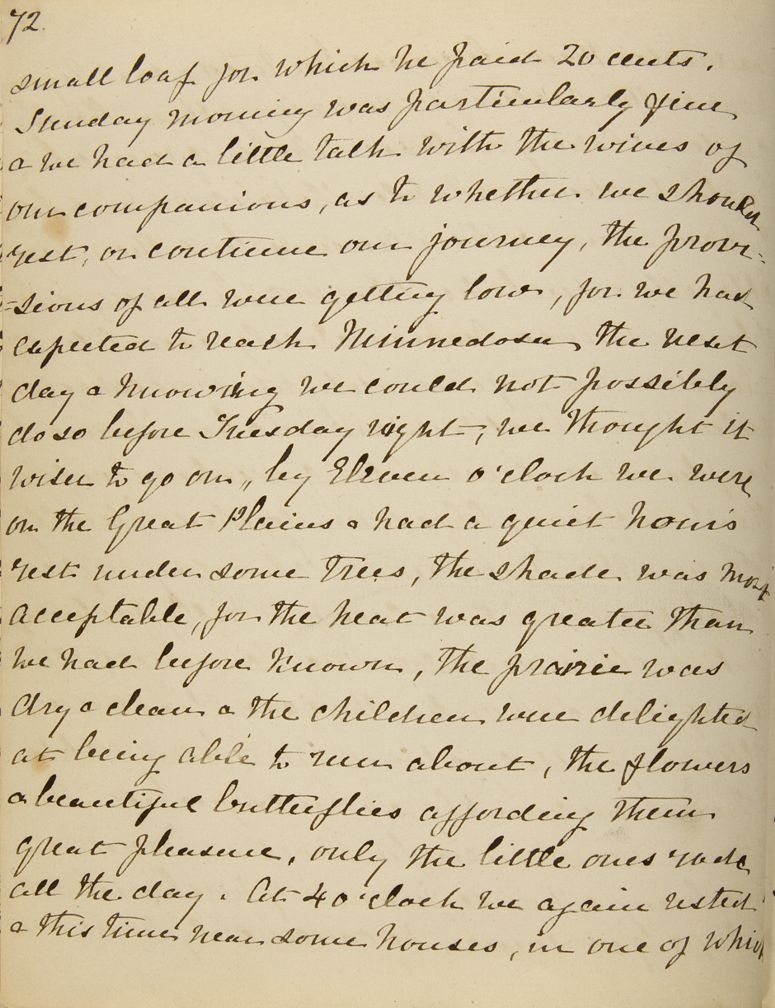 72.
small loaf for which he paid 20 cents.
Sunday morning was particularly fine
& we had a little talk with the wives of
our companions, as to whether we should
rest, or continue our journey, the provi-
=sions of all were getting low, for we had
expected to reach Minnedosa the next
day & knowing we could not possibly
do so before Tuesday night, we thought it
wiser to go on, by Eleven o'clock we were
on the Great Plains & had a quiet hour's
rest under some trees, the shade was most
acceptable, for the heat was greater than
we had before known, the prairie was
dry & clean & the children were delighted
at being able to run about, the flowers
& beautiful butterflies affording them
great pleasure, only the little ones rode
all the day. At 4 o'clock we again rested
& this time near some houses, in one of which